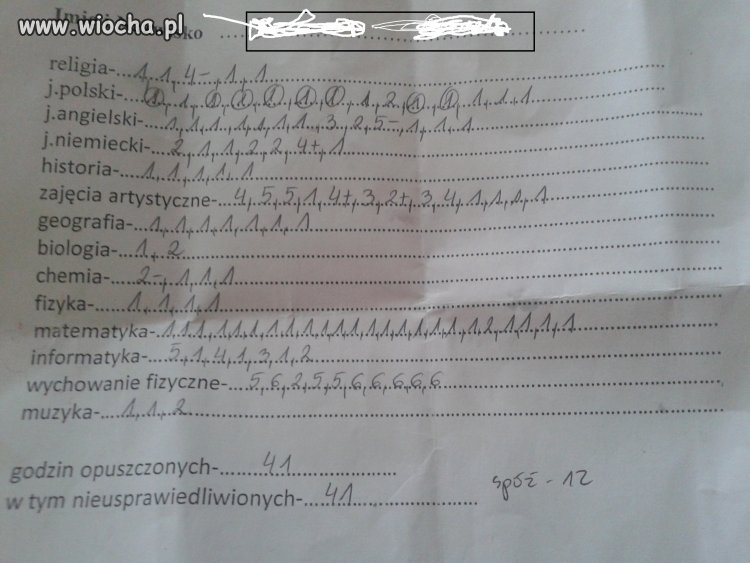 www.wiocha.pl
religia-....1,1,4-,1,1
j.polski-...1,1,1,1,1,1,1,1,2,1,1,1,1,1
j.angielski-...1,1,1,1,1,1,1,3,2,5-,1,1,1
j.niemiecki-...2,1,1,2,2,4+,1
historia-...1,1,1,1,1
zajęcia artystyczne-...4,5,5,1,4+,3,2+,3,4,1,1,1,1
geografia-...1,1,1,1,1,1,1
biologia-...1,2
chemia-...2-,1,1,1
fizyka-...1,1,1,1
matematyka-1,1,1,1,1,1,1,1,1,1,1,1,1,1,1,1,1,1,1,2,1,1,1,1
informatyka-...5,1,4,1,3,1,2
wychowanie fizyczne-...5,6,2,5,5,6,6,6,6,6
muzyka-...1,1,2
godzin opuszczonych-...41
w tym nieusprawiedliwionych-...41 spóź - 12